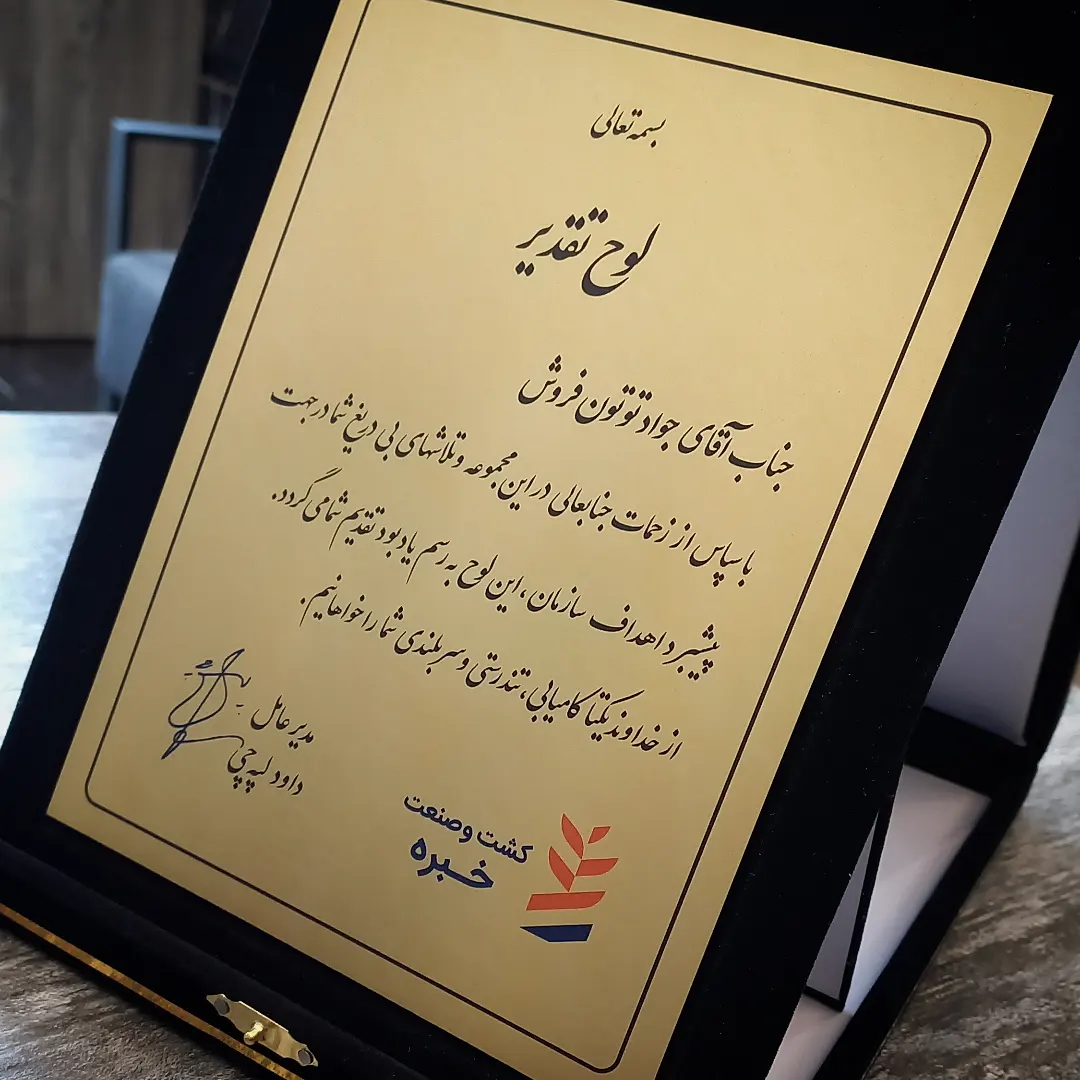 بسمه تعالی
لوح تقدیر
جناب آقای جواد توتون فروش
با سپاس از زحمات جنابعالی در این مجموعه و تلاشهای بی دریغ شما در جهت
پیشبرد اهداف سازمان، این لوح به رسم یادبود تقدیم شما می گردد.
از خداوند یکتا کامیابی، تندرستی و سربلندی شما را خواهانیم.
مدیر عامل
داود لپه چی
کشت و صنعت
خبره